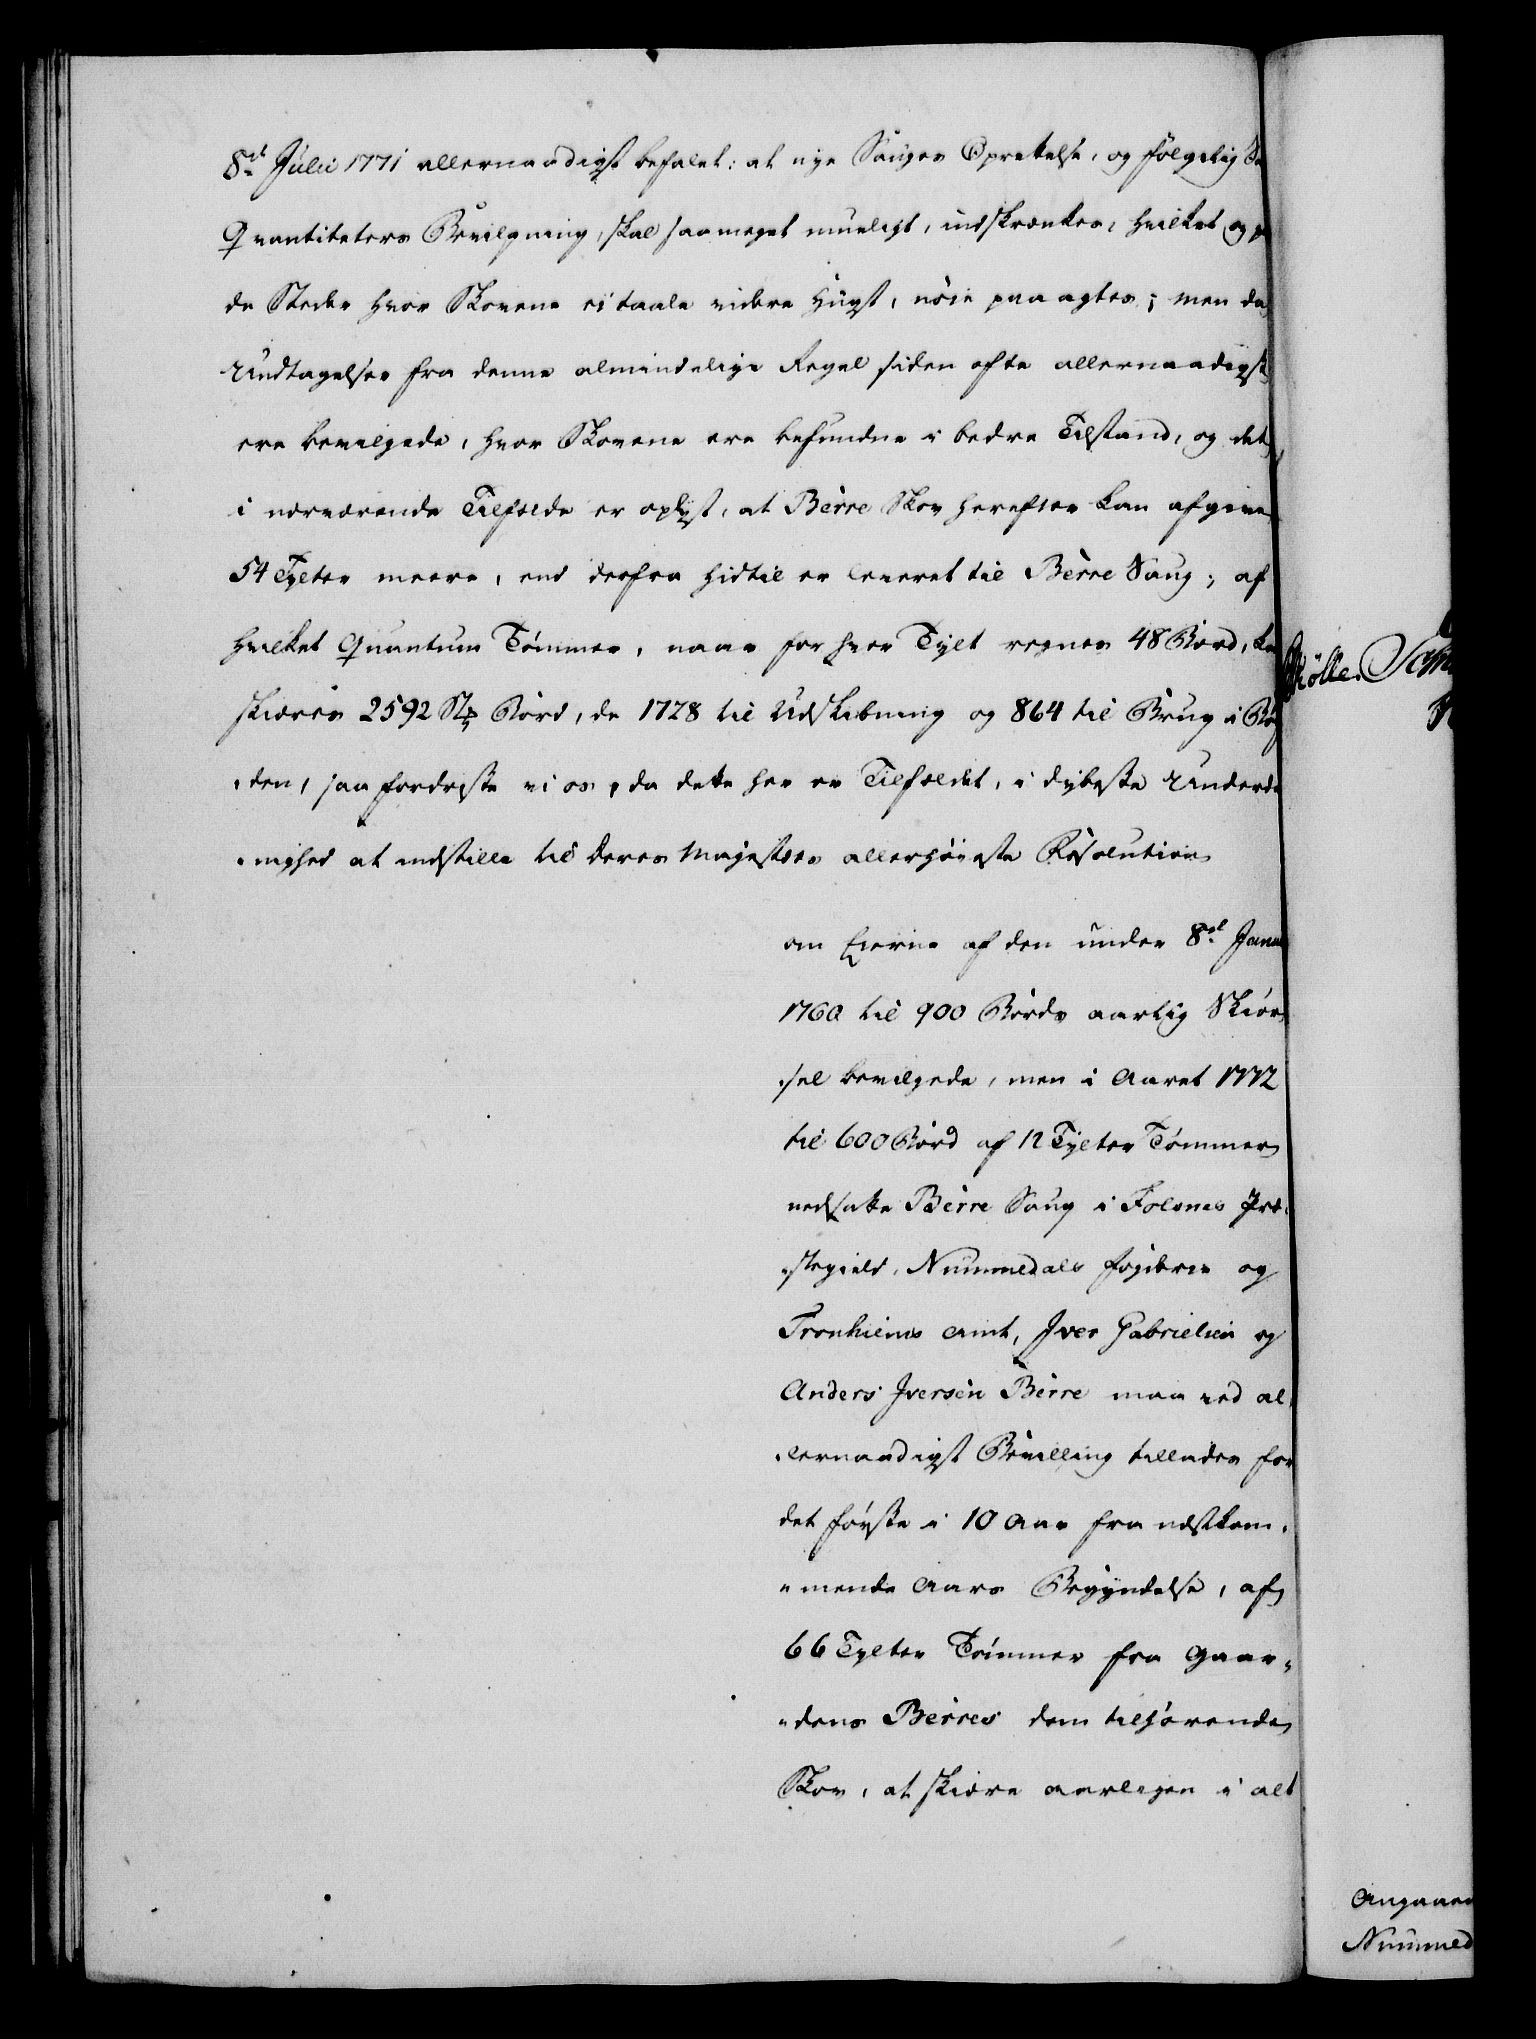 8de Julii 1771 allernaadigst befalet: at nye Sauges Oprettelse, og følgelig
Qvantiteters Bevilgning, skal saa meget mueligt, indskrænkes, hvilket og
de Steder hvor Skovene ei taale videre Hugst, nøie paa agtes; men da
Undtagelser fra denne almindelige Regel siden ofte allernaadigst
ere bevilgede, hvor Skovene ere befundne i bedre Tilstand, og det
i nærværende Tilfælde er oplyst, at Bèrre Skov herefter kan afgive
54 Tylter meere, end derfra hidtil er leveret til Bèrre Saug; af
hvilket Quantum Tømmer, naar for hver Tylt regnes 48 Bord,
skiæres 2592 Stk Bord, de 1728 til Udskibning og 864 til Brug i
-den, saa fordriste vi os, da dette her er Tilfældet, i dybeste Underda
-nighed at indstille til Deres Majestets allerhøieste Resolution
om Eierne af den under 8de Janu
1760 til 900 Bords aarlig Skiør
-sel bevilgede, men i Aaret 1772
til 600 Bord af 12 Tylter Tømmer
nedsatte Bèrre Saug i Folsnes Præ-
-stegield, Nummedals Fogderie og
Tronhiems Amt, Iver Gabrielsen og
Anders Iversen Bèrre maa ved al-
-lernaadigst Bevilling tillades for
det første i 10 Aar fra nestkom-
-mende Aars Begyndelse, af
66 Tylter Tømmer fra Gaar-
-dens Berres dem tilhørende
Skov, at skiære aarligen i alt
Angaaen
Nummed